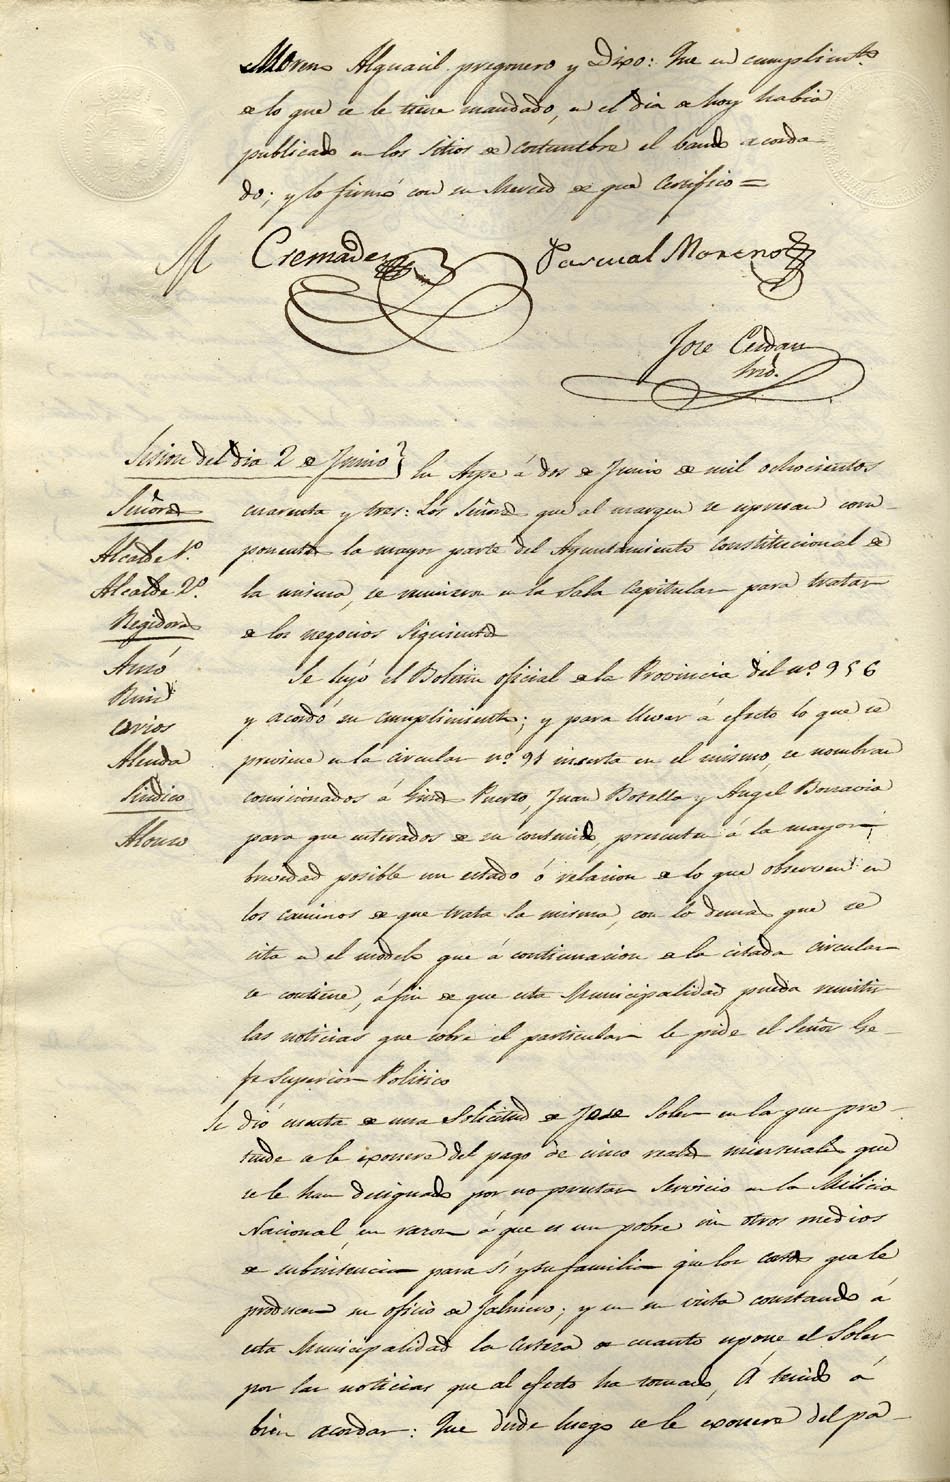 Moreno Alguacil pregonero y Dixo: Que en cumplimto.
de lo que se le tiene mandado, en el dia de hoy habia
publicado en los sitios de costumbre el bando acorda-
do; y lo firmó con su Merced de que certifico =
M Cremades
Pascual Moreno
Jose Cerdan
Srio.
Sesion del dia 2 de Junio
Señores
Alcalde 1.º
Alcalde 2.º
Regidores
Amó
Ruiz
Cerios
Alenda
Sindico
Alonso
En Aspe á dos de Junio de mil ochocientos
cuarenta y tres: Los Señores que al margen se espresan com-
ponentes la mayor parte del Ayuntamiento constitucional de
la misma, se reunieron en la Sala Capitular para tratar
de los negocios siguientes
Se leyó el Boletin oficial de la Provincia del nº. 956
y acordó su cumplimiento; y para llevar á efecto lo que se
previene en la circular nº. 91 inserta en el mismo, se nombran
comicionados á Ginés Puerto, Juan Botella y Angel Bonavia
para que enterados de su contenido, presenten á la mayor
brevedad posible un estado ó relacion de lo que observen en
los caminos de que trata la misma, con lo demas que se
cita en el modelo que á continuacion de la citada circular
se contiene, á fin de que esta Municipalidad pueda remitir
las noticias que sobre el particular le pide el Señor Ge-
fe Superior Politico
Se dió cuenta de una Solicitud de Jose Soler en la que pre-
tende se le exonere del pago de cinco reales mensuales que
se le han designado por no prestar servicio en la Milicia
Nacional, en razon á que es un pobre sin otros medios
de subsistencia para sí y su familia que los cortos que le
producen su oficio de Jalmero; y en su vista constando á
esta Municipalidad la certeza de cuanto espone el Soler
por las noticias que al efecto ha tomado, Á tenido á
bien acordar: Que desde luego se le exonere del pa-